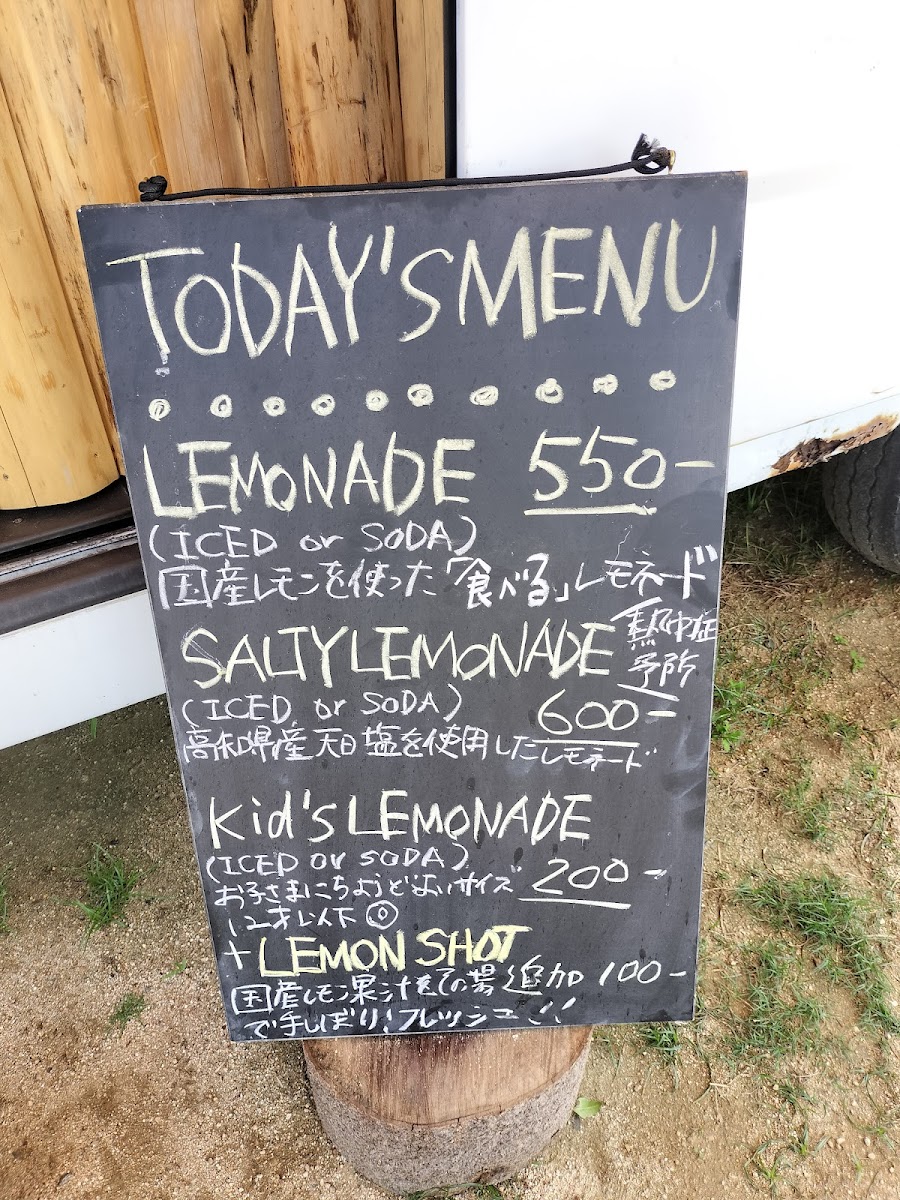 TODAY'S MENU
LEMONADE 550-
(ICED or SODA)
国産レモンを使った「食べる」レモネード
SALTY LEMONADE
熱中症
予防
(ICED or SODA) 600-
高知県産天日塩を使用したレモネード
Kid's LEMONADE
(ICED or SODA)
お子さまにちょうどよいサイズ 200-
12才以下◎
+LEMON SHOT
国産レモン果汁をその場 追加 100-
で手しぼり!フレッシュ!!